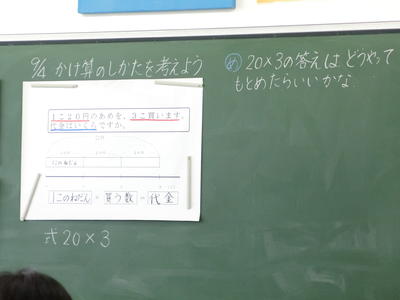 9/4 かけ算のしかたを考えよう
め 20×3の答えは どうやって
もとめたらいいかな
1こ20円のあめを、3こ買います。
代金はいくらですか。
1このねだん
1このねだん × 買う数 = 代金
式 20×3